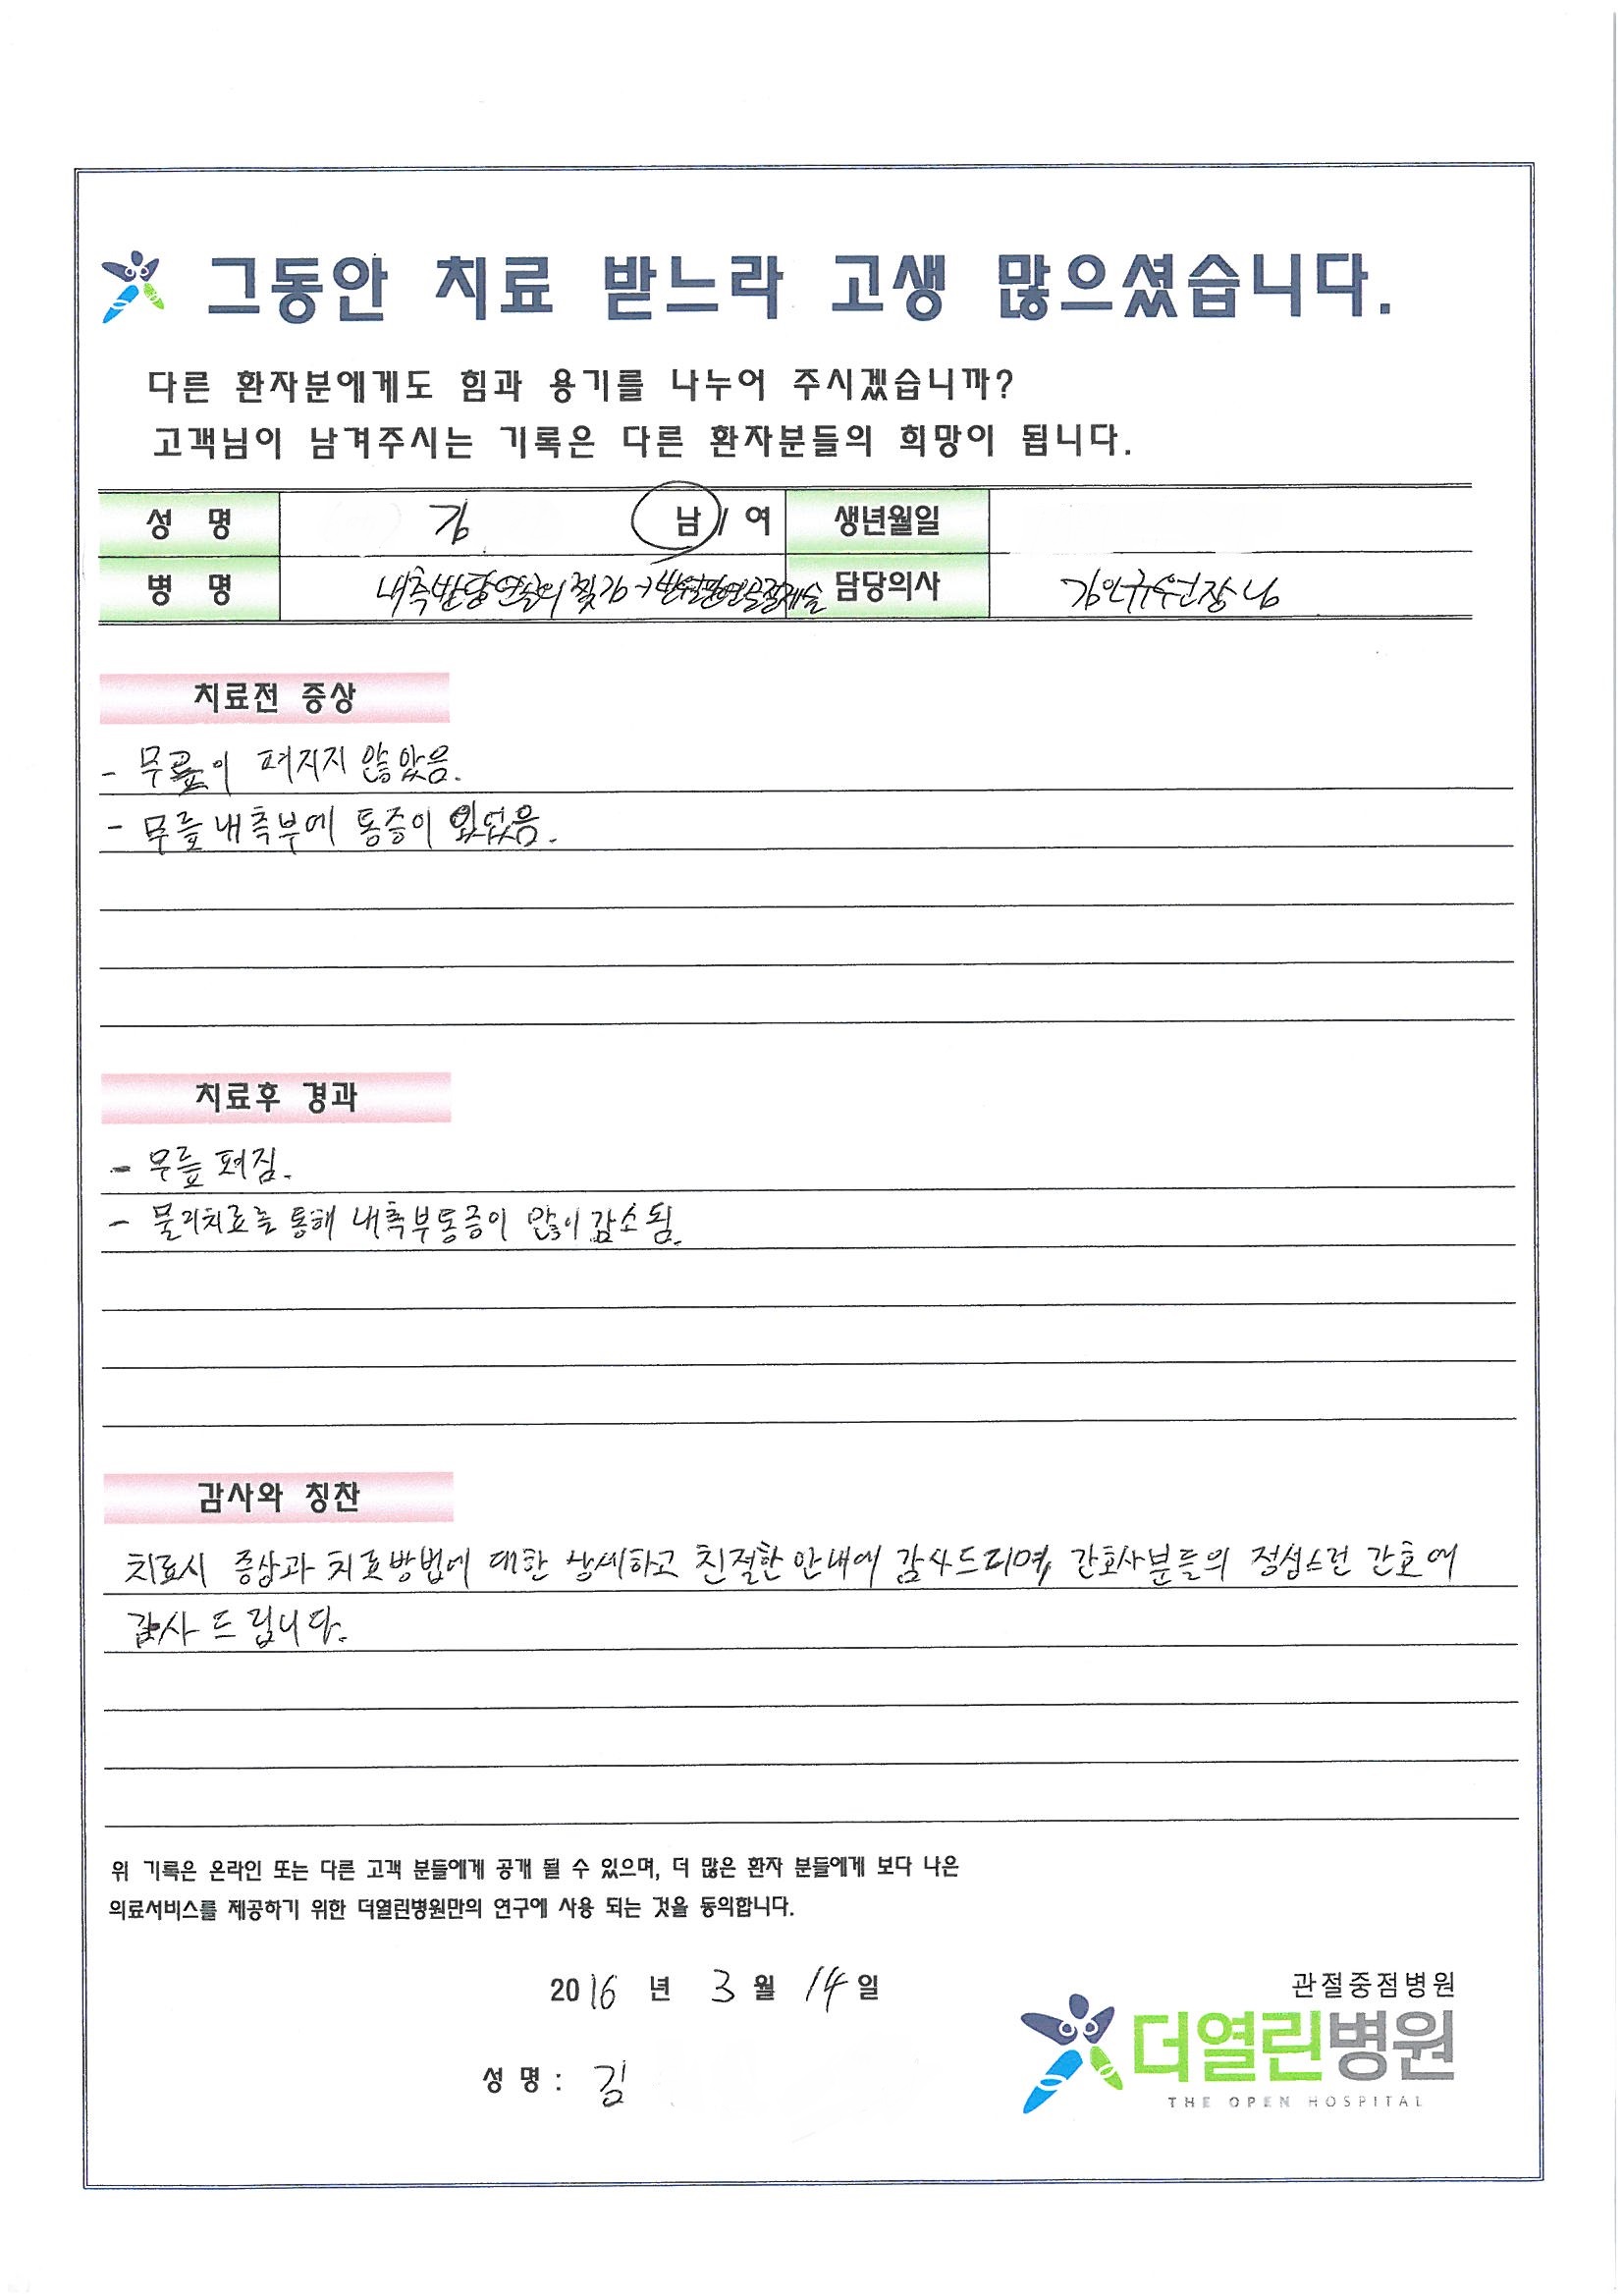 그동안 치료 받느라 고생 많으셨습니다.
다른 환자분에게도 힘과 용기를 나누어 주시겠습니까?
고객님이 남겨주시는 기록은 다른 환자분들의 희망이 됩니다.
성 명 김 남 / 여 생년월일
병 명 내측반달연골의 찢김 → 반월판연골절제술 담당의사 김인규원장님
치료전 증상
- 무릎이 펴지지 않았음.
- 무릎 내측부에 통증이 있었음.
치료후 경과
- 무릎 펴짐.
- 물리치료를 통해 내측부통증이 많이 감소됨.
감사와 칭찬
치료시 증상과 치료방법에 대한 상세하고 친절한 안내에 감사드리며, 간호사분들의 정성스런 간호에
감사 드립니다.
위 기록은 온라인 또는 다른 고객 분들에게 공개 될 수 있으며, 더 많은 환자 분들에게 보다 나은
의료서비스를 제공하기 위한 더열린병원만의 연구에 사용 되는 것을 동의합니다.
2016 년 3 월 14 일
성 명 : 김
관절중점병원
더열린병원
THE OPEN HOSPITAL